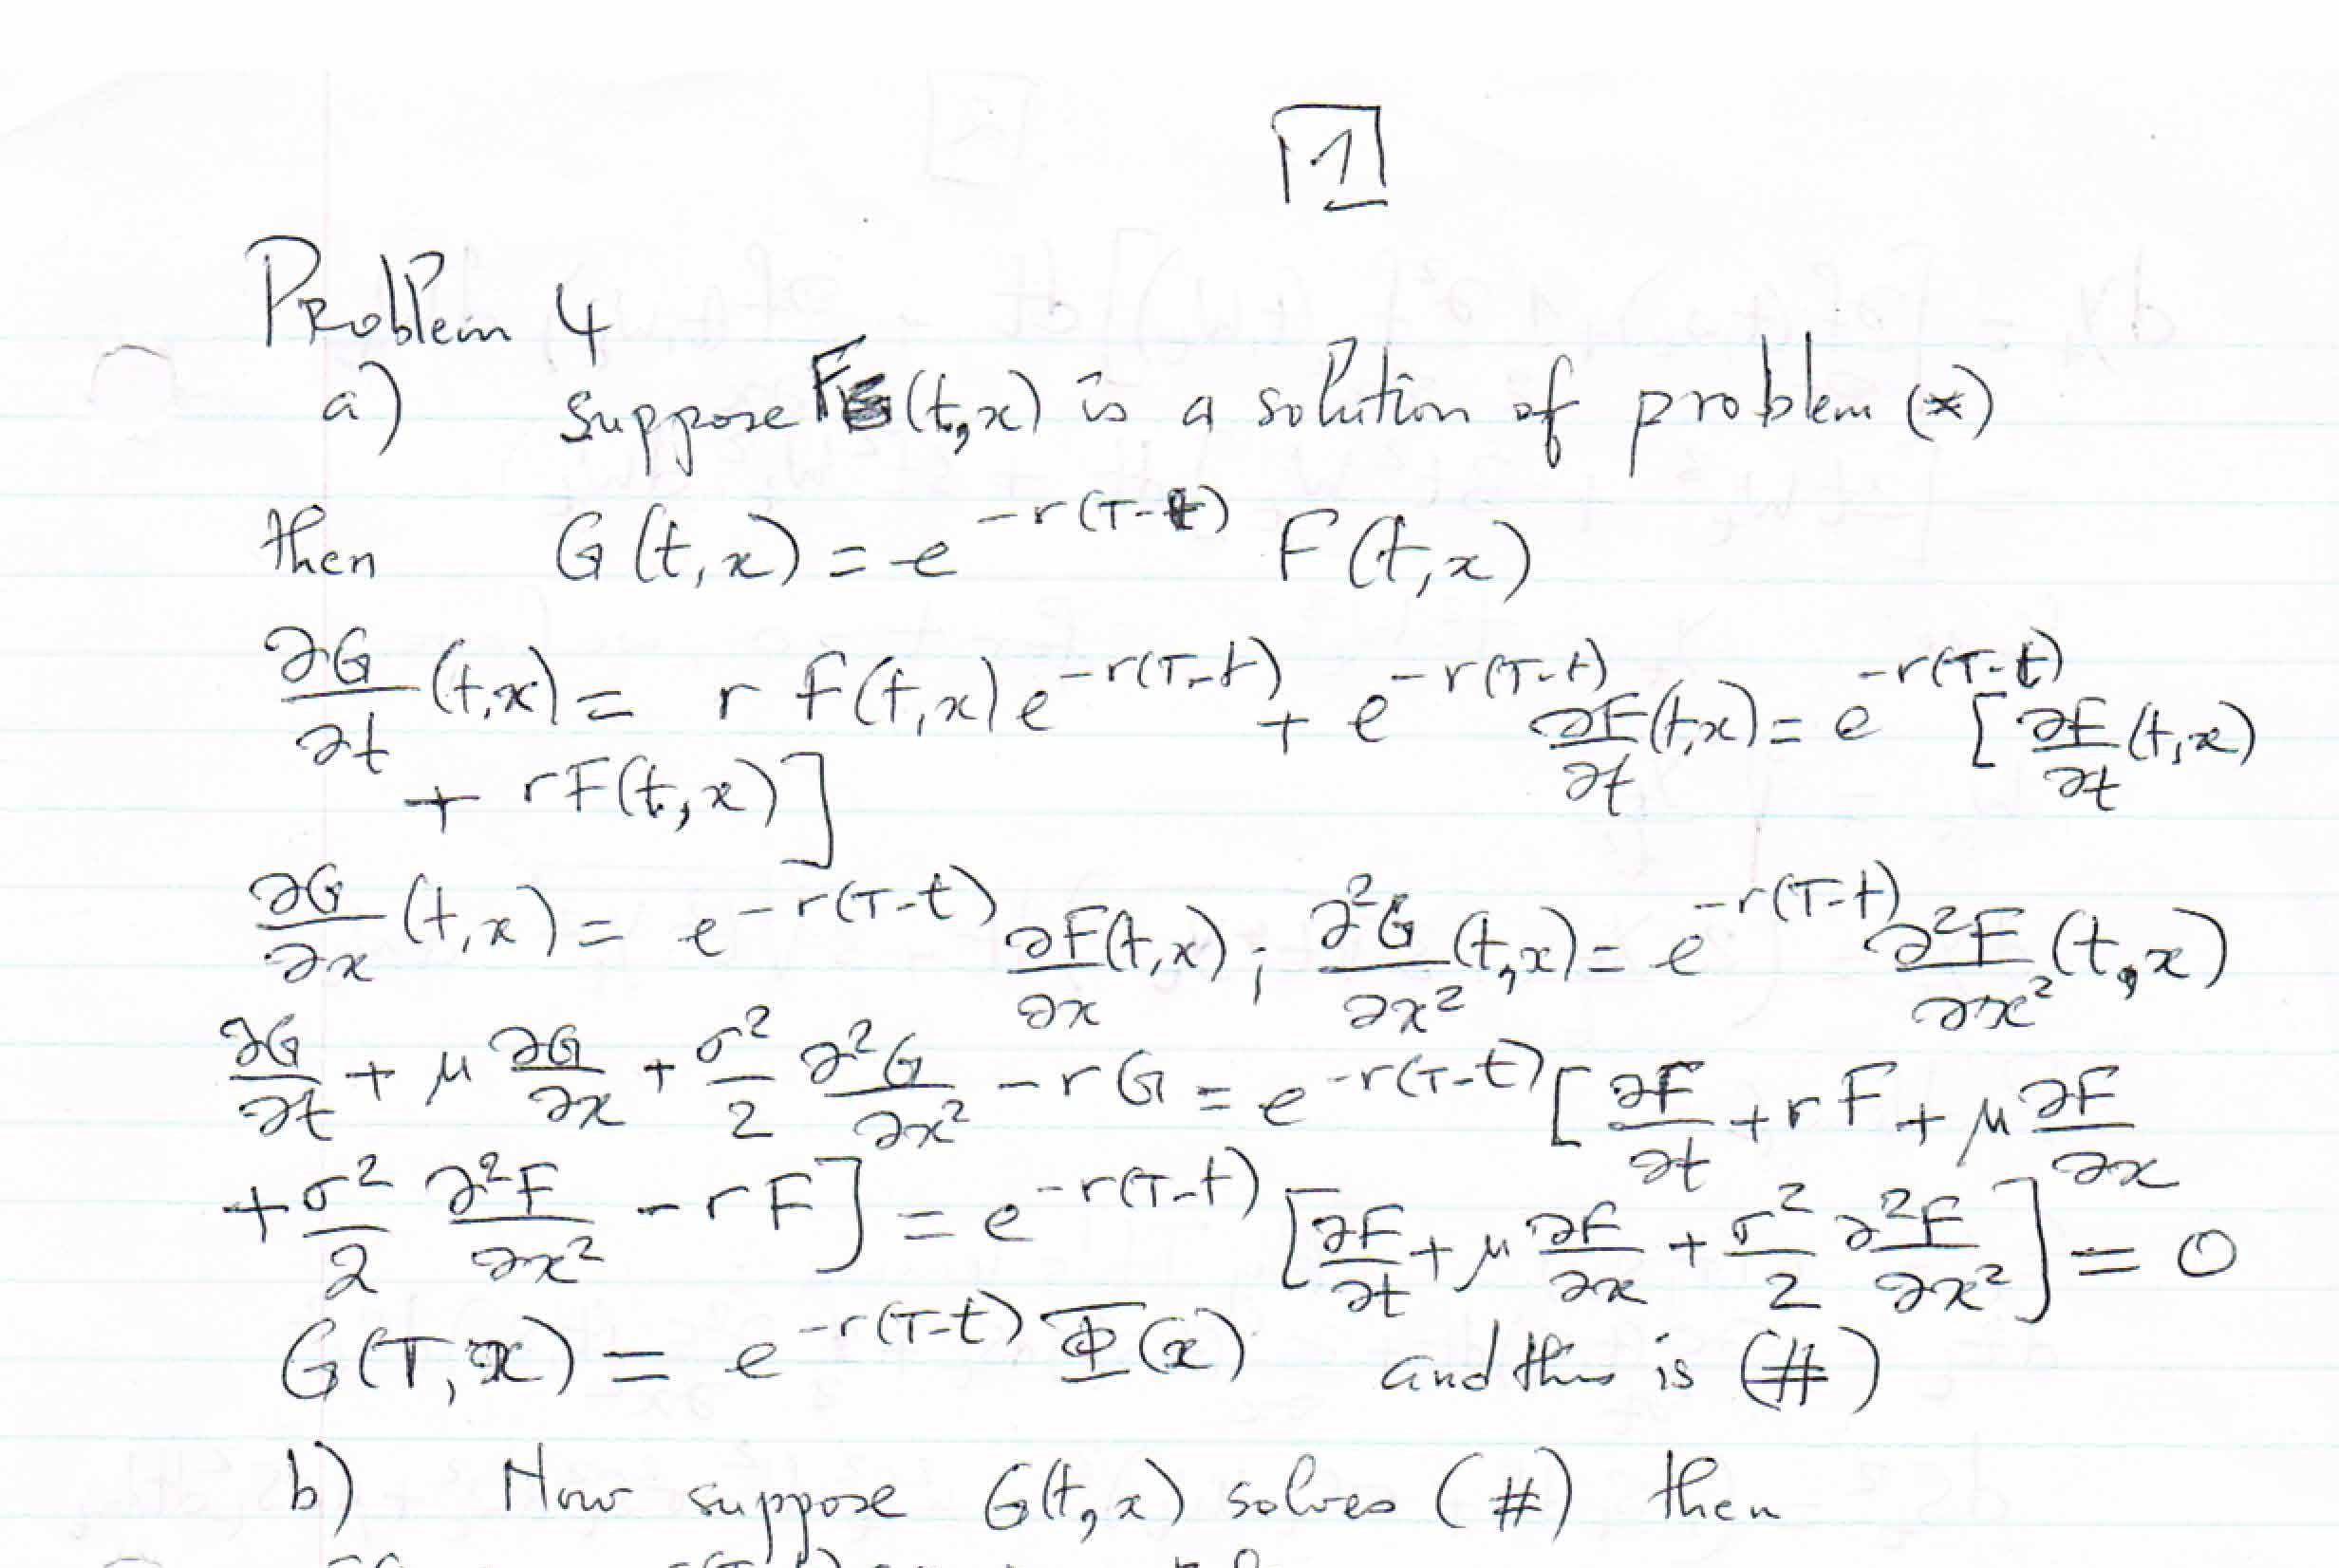 1
Problem 4
a) Suppose F(t,x) is a solution of problem (*)
then G(t,x) = e^{-r(T-t)} F(t,x)
∂G/∂t (t,x) = r F(t,x) e^{-r(T-t)} + e^{-r(T-t)} ∂F/∂t (t,x) = e^{-r(T-t)} [ ∂F/∂t (t,x)
+ rF(t,x) ]
∂G/∂x (t,x) = e^{-r(T-t)} ∂F/∂x (t,x) ; ∂²G/∂x² (t,x) = e^{-r(T-t)} ∂²F/∂x² (t,x)
∂G/∂t + μ ∂G/∂x + σ²/2 ∂²G/∂x² - rG = e^{-r(T-t)} [ ∂F/∂t + rF + μ ∂F/∂x
+ σ²/2 ∂²F/∂x² - rF ] = e^{-r(T-t)} [ ∂F/∂t + μ ∂F/∂x + σ²/2 ∂²F/∂x² ] = 0
G(T,x) = e^{-r(T-t)} Φ(x) and this is (#)
b) Now suppose G(t,x) solves (#) then